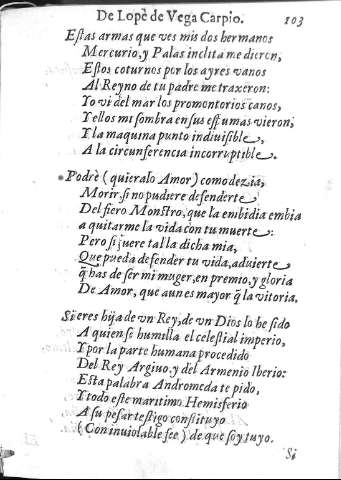 De Lopè de Vega Carpio. 103
Eſtas armas que ves mis dos hermanos
Mercurio, y Palas inclita me dieron,
Eſtos coturnos por los ayres vanos
Al Reyno de tu padre me traxeron:
Yo vi del mar los promontorios canos,
Y ellos mi ſombra en ſus eſpumas vieron,
Y la maquina punto indiuiſible,
A la circunferencia incorruptible.
Podrè (quieralo Amor) como dezia,
Morir, ſi no pudiere defenderte
Del fiero Monſtro, que la embidia embia
a quitarme la vida con tu muerte:
Pero ſi fuere tal la dicha mia,
Que pueda defender tu vida, aduierte
q̃ has de ſer mi muger, en premio, y gloria
De Amor, que aun es mayor q̃ la vitoria.
Si eres hija de vn Rey, de vn Dios lo he ſido
A quien ſe humilla el celeſtial imperio,
Y por la parte humana procedido
Del Rey Argiuo, y del Armenio Iberio:
Eſta palabra Andromeda te pido,
Y todo eſte maritimo Hemisferio
A ſu peſar teſtigo conſtituyo
(Con inuiolable fee) de que ſoy tuyo.
Si